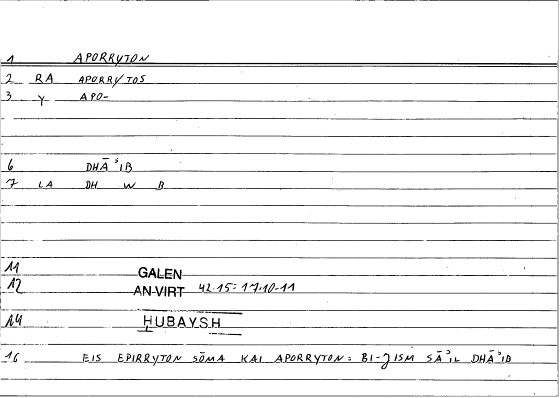 1 APORRYTON
2 RA APORRYTOS
3 Y APO-
6 DHĀʾIB
7 LA DH W B
11 GALEN
12 AN-VIRT 42.15 = 17.10-11
14 HUBAYSH
16 EIS EPIRRYTON SŌMA KAI APORRYTON = BI-ǦISM SĀʾIL DHĀʾIB